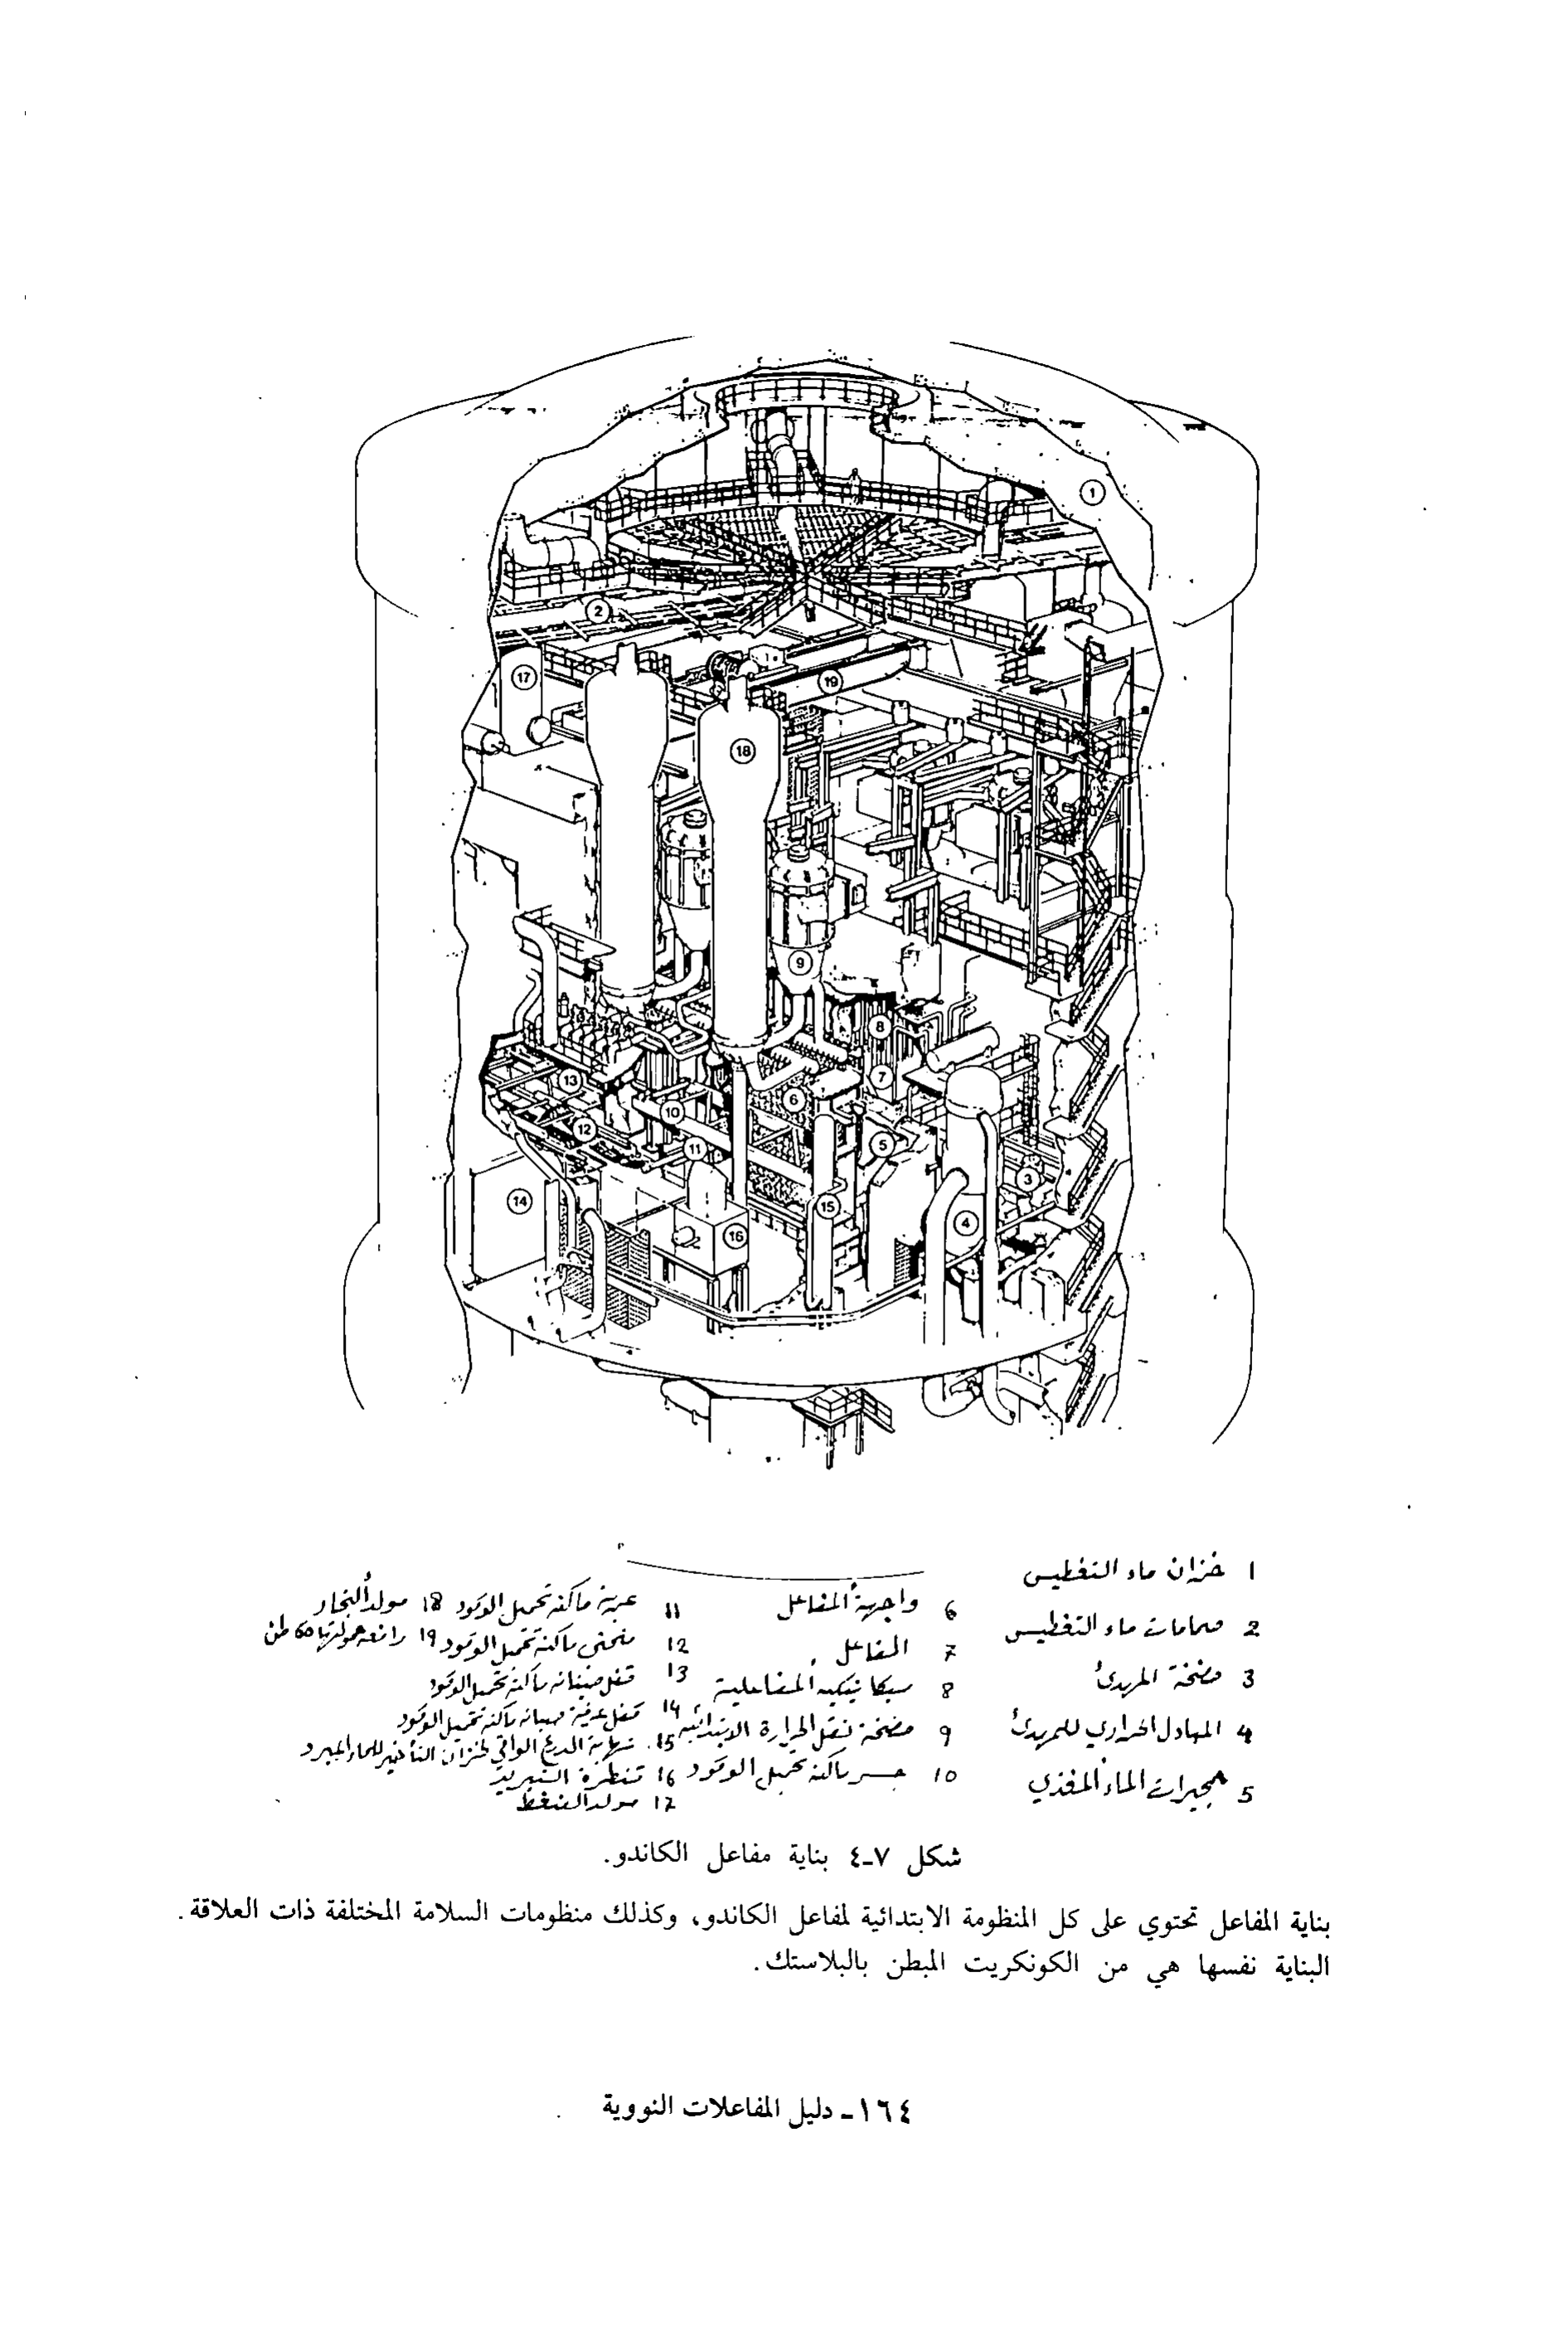 1 خزان ماء التغطيس
2 صمامات ماء التغطيس
3 مضخة المهدئ
4 المبادل الحراري للمهدئ
5 مجيرات الماء المغذي
6 واجهة المفاعل
7 المفاعل
8 ميكانيكية المفاعلية
9 مضخة نقل الحرارة الابتدائية
10 جسر ماكنة تحميل الوقود
11 عربة ماكنة تحميل الوقود
12 منحنى ماكنة تحميل الوقود
13 قفل صيانة ماكنة تحميل الوقود
14 قفل غرفة صيانة ماكنة تحميل الوقود
15. نهاية الدرع الواقي لخزان التأخير للماء المبرد
16 قنطرة التبريد
17 مولد الضغط
18 مولد البخار
19 رافعة حمولتها 60 طن
شكل ٧-٤ بناية مفاعل الكاندو.
بناية المفاعل تحتوي على كل المنظومة الابتدائية لمفاعل الكاندو، وكذلك منظومات السلامة المختلفة ذات العلاقة.
البناية نفسها هي من الكونكريت المبطن بالبلاستك.
١٦٤- دليل المفاعلات النووية